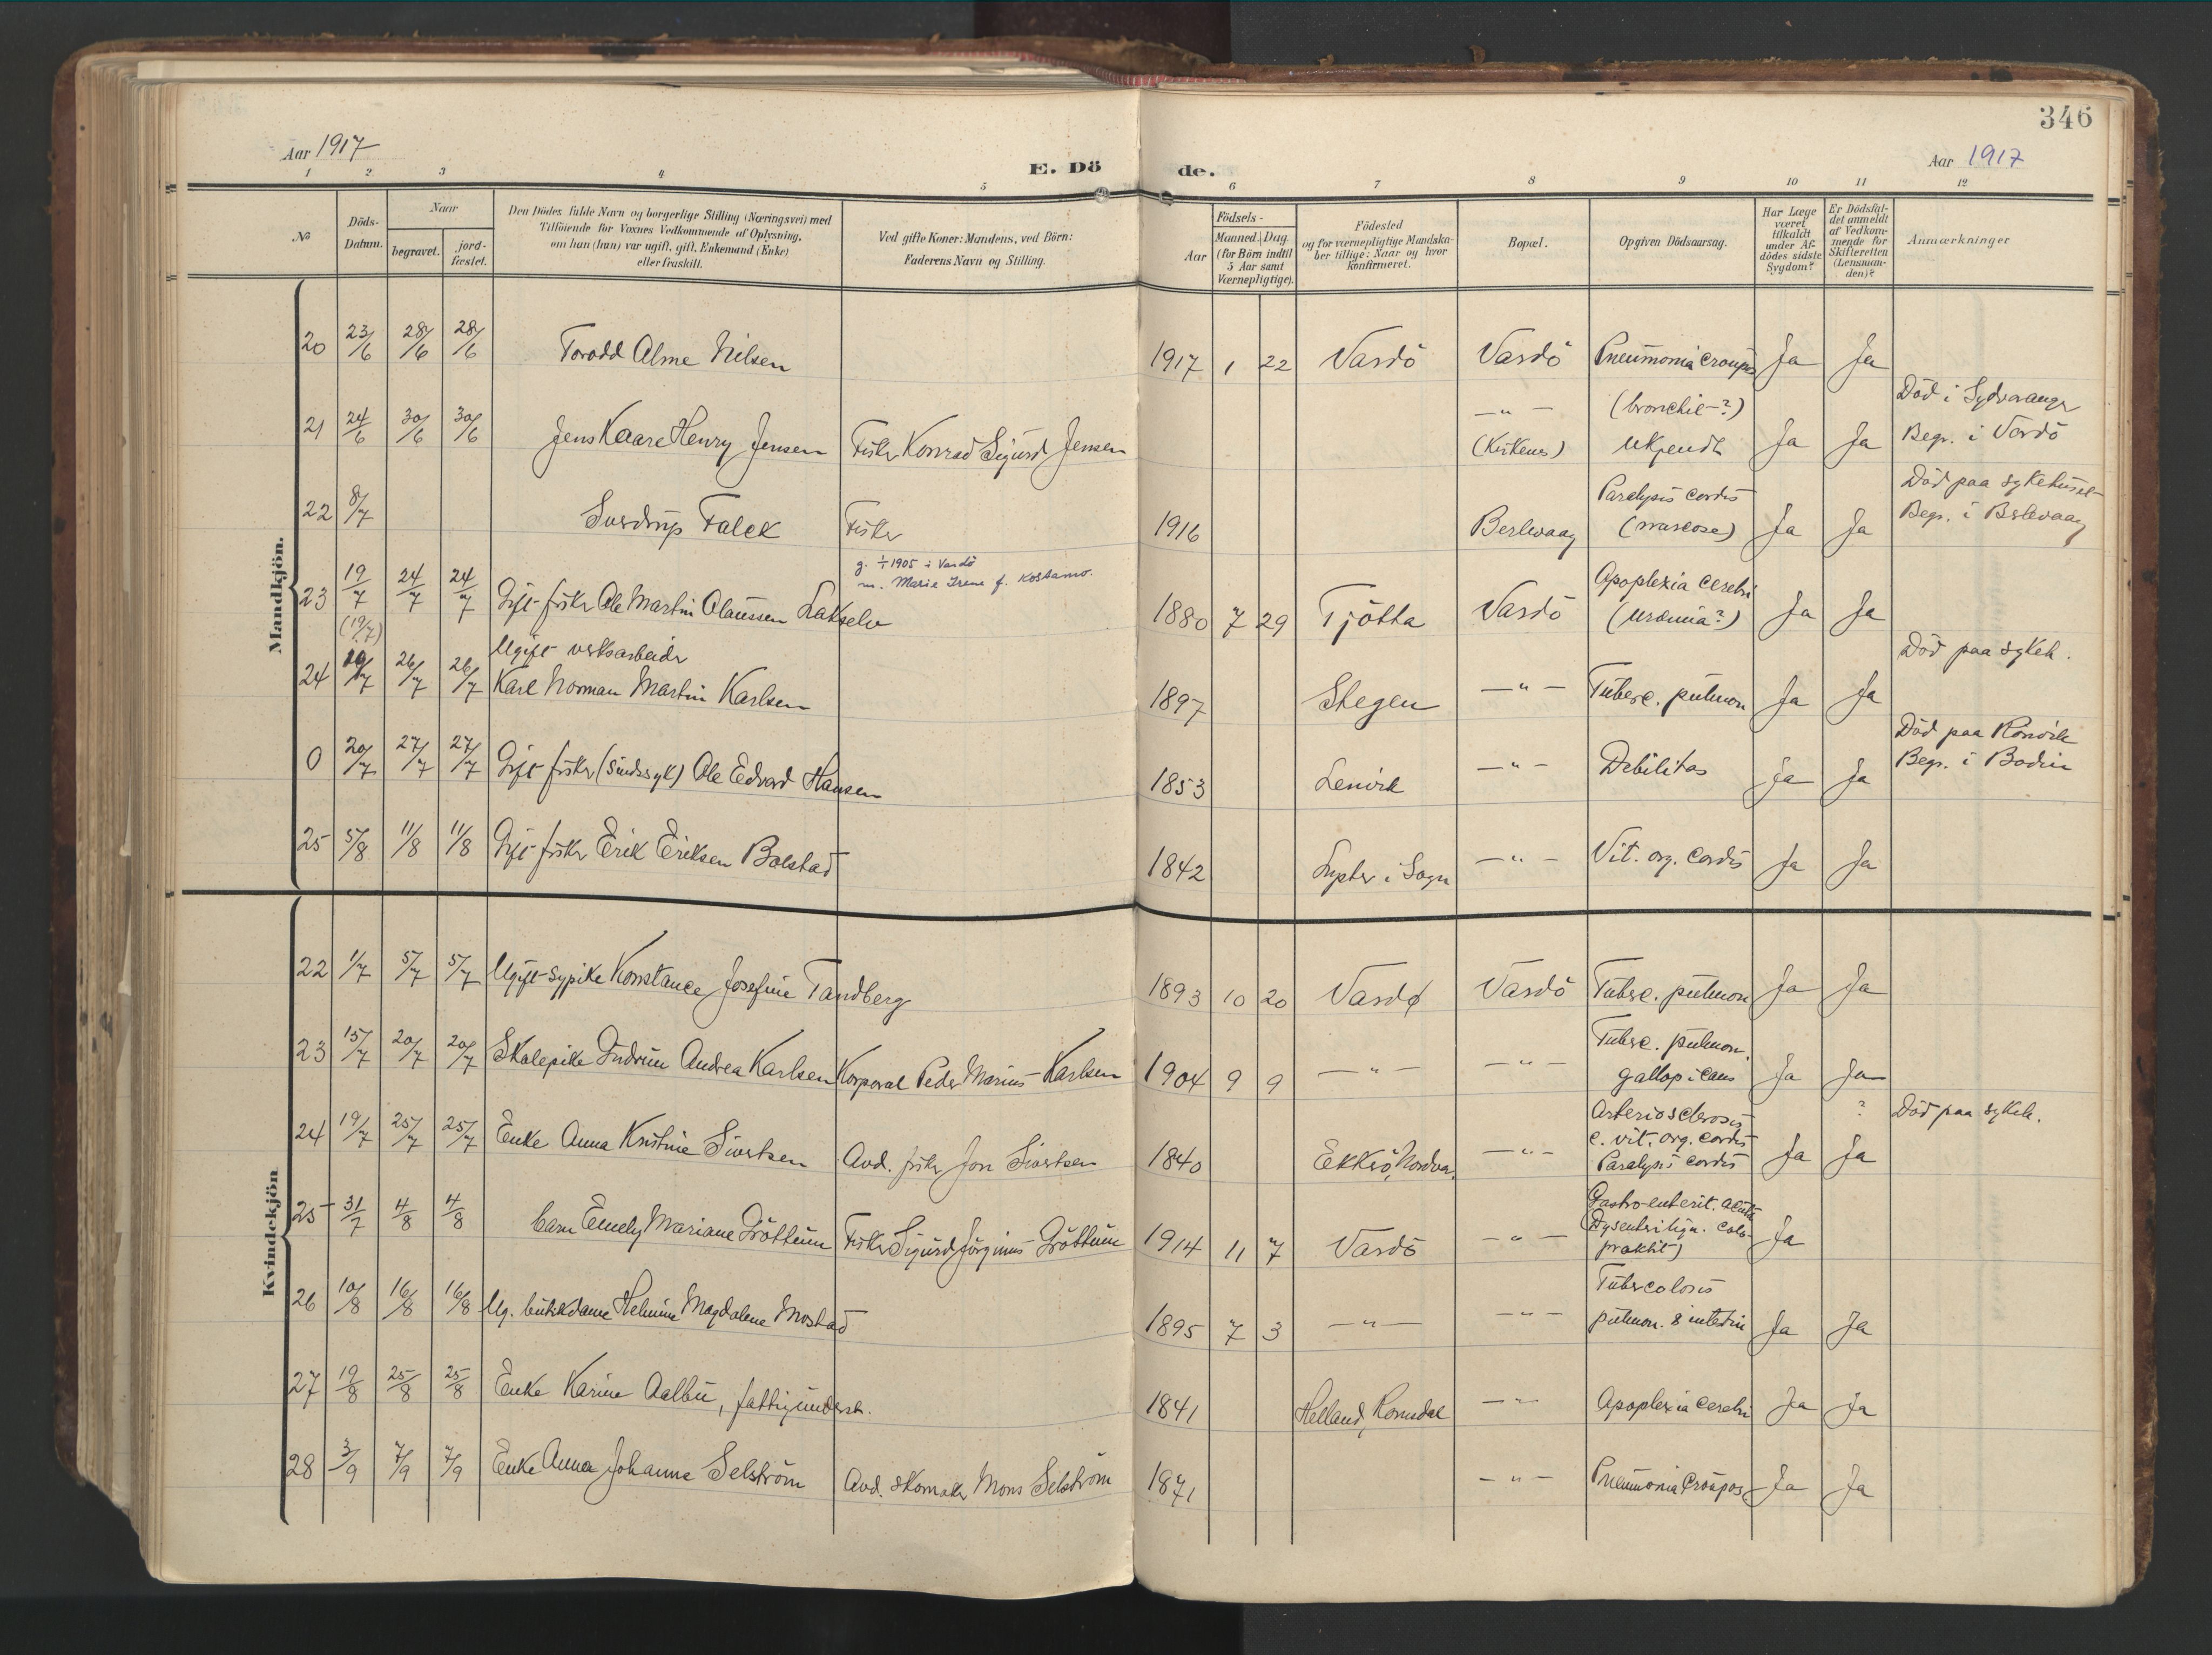 346
Aar 1917
E. Dö de.
Aar 1917
1 2 3 4 5 6 7 8 9 10 11 12
No
Döds-Datum.
Naar
begravet.
jord-fæstet.
Den Dödes fulde Navn og borgerlige Stilling (Næringsvei) med
Tilföiende for Voxnes Vedkommende af Oplysning,
om han (hun) var ugift, gift, Enkemand (Enke)
eller fraskilt.
Ved gifte Koner: Mandens, ved Börn:
Faderens Navn og Stilling.
Födsels-
Aar
Maaned. Dag
(for Börn indtil
5 Aar samt
Værnepligtige).
Födested
og for værnepligtige Mandska-
ber tillige: Naar og hvor
konfirmeret.
Bopæl.
Opgiven Dödsaarsag.
Har Læge
været
tilkaldt
under Af-
dödes sidste
Sygdom?
Er Dödsfal-
det anmeldt
af Vedkom-
mende for
Skifteretten
(Lensman-
den)?
Anmærkninger
Mandkjön.
20 23/6 28/6 28/6 Torodd Alme Nilsen 1917 1 22 Vardö Vardö Pneumonia croupos Ja Ja
21 24/6 30/6 30/6 Jens Kaare Henry Jensen Fisker Konrad Sigurd Jensen —"— (Kirkenes) (bronchie-?) ukjendt Ja Ja Död i Sydvaranger Begr. i Vardö
22 8/7 Sverdrup Falck Fisker 1916 Berlevaag Paralysis cordis Ja Ja Död paa sykehuset Begr. i Berlevaag
23 19/7 24/7 24/7 Gift fisker Ole Martin Olaussen Lakselv g. 1905 i Vardö m. Marie Irene f. Kostamo. 1880 7 29 Tjötta Vardö Apoplexia cerebri (uræmia?) Ja Ja
24 (19/7) 26/7 26/7 Ugift verksarbeider Karl Norman Martin Karlsen 1897 Stegen —"— Tuberc. pulmon Ja Ja Död paa sykeh.
0 20/7 27/7 27/7 Gift fisker (sindssyk) Ole Edvard Hansen 1853 Lenvik —"— Debilitas Ja Ja Död paa Rönvik Begr. i Bodin
25 5/8 11/8 11/8 Gift fisker Erik Eriksen Bolstad 1842 Lyster i Sogn —"— Vit. org. cordis Ja Ja
Kvindekjön
22 1/7 5/7 5/7 Ugift sypike Konstance Josefine Tandberg 1893 10 20 Vardø Vardö Tuberc. pulmon Ja Ja
23 15/7 20/7 20/7 Skolepike Gudrun Andrea Karlsen Korporal Peder Marius Karlsen 1904 9 9 —"— —"— Tuberc. pulmon. gallopicans Ja Ja
24 19/7 25/7 25/7 Enke Anna Kristine Sivertsen Avd. fisker Jon Sivertsen 1840 Ekkerö, Nordva. —"— Arteriosclerosis c. vit. org. cordis Paralysis cordis Ja ? Ja Död paa sykeh.
25 31/7 4/8 4/8 barn Emely Mariane Gröttum Fisker Sigurd Jörginus Gröttum 1914 11 7 Vardö —"— Gastro-enterit. acuta (Dysenterilign. colo-proktit) Ja
26 10/8 16/8 16/8 Ug. butikdame Helmine Magdalene Mostad 1895 7 3 —"— —"— Tuberculosis pulmon. & intestin Ja Ja
27 19/8 25/8 25/8 Enke Karine Aalbu, fattigunderst. 1841 Helland, Romsdal —"— Apoplexia cerebri Ja Ja
28 3/9 7/9 7/9 Enke Anna Johanna Selström Avd. skomaker Mons Selström 1871 —"— Pneumonia Croupos Ja Ja